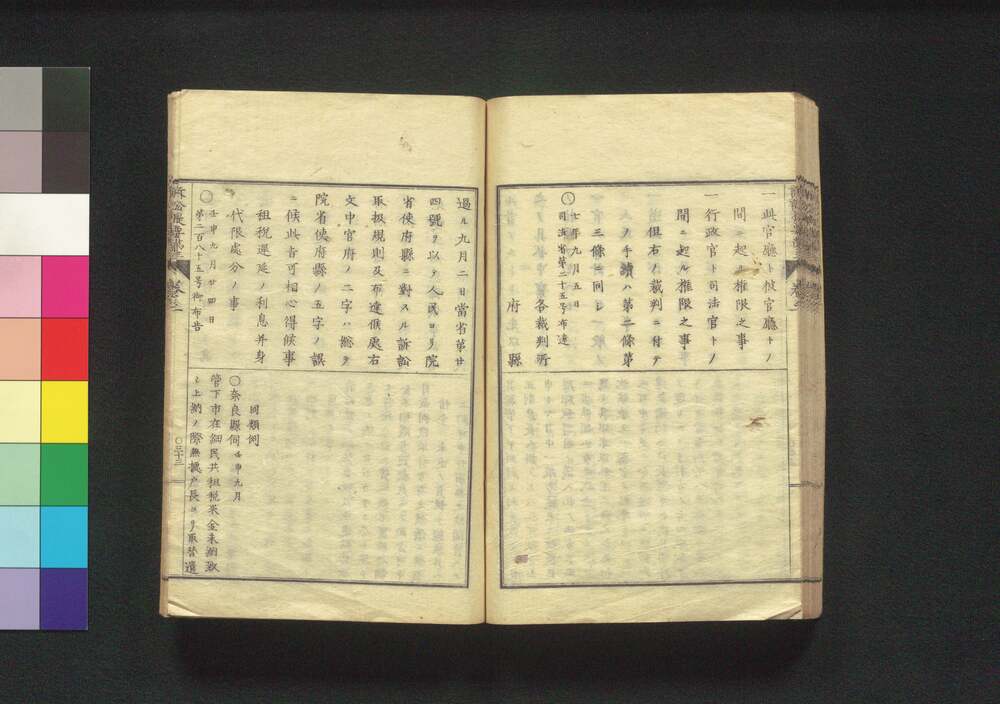 一此官廳ト彼官廳トノ
間ニ起ル権限之事
一行政官ト司法官トノ
間ニ起ル権限之事
但右ノ裁判ニ付テ
ノ手續ハ第二條第
三條ニ同シ
〇七年九月五日
司法省第二十五号布達
各裁判所
府縣
過ル九月二日當省第廿
四號ヲ以テ人民ヨリ院
省使府縣ニ對スル訴訟
取扱規則及布達候處右
文中官府ノ二字ハ總テ
院省使府縣ノ五字ノ誤
ニ候此旨可相心得候事
租税遅延ノ利息并身
代限處分ノ事
〇壬申九月廿四日
第二百八十五号御布告
同類伺
〇奈良縣伺壬申九月
管下市在細民共租税米金未納致
シ上納ノ際無據戸長ヨリ取替遣
卷之一
〇三十三